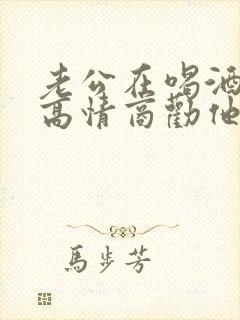 老公在喝酒
高情商勸他
馬步芳